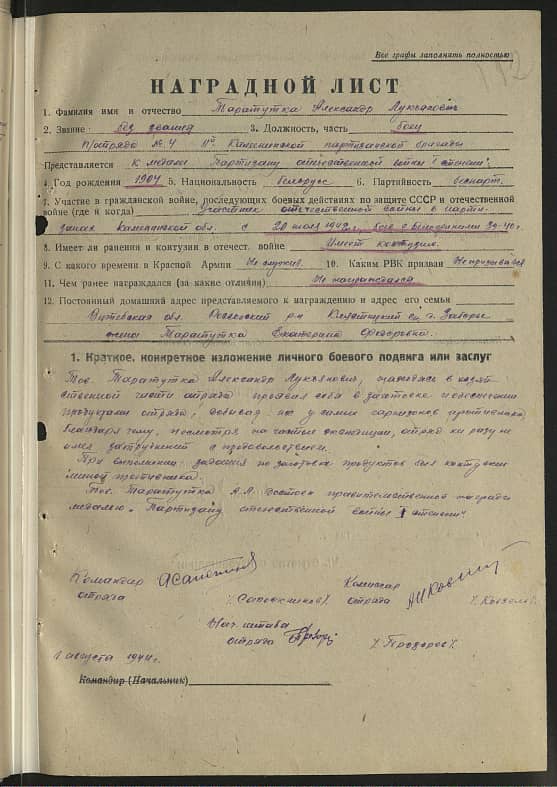 Все графы заполнять полностью
НАГРАДНОЙ ЛИСТ
1. Фамилия имя и отчество Таратутка Александр Лукьянович
2. Звание без звания 3. Должность, часть боец
п/отряда № 4 партизанской бригады
Представляется к медали Партизану отечественной войны I степени
4. Год рождения 1907 5. Национальность белорус 6. Партийность беспарт.
7. Участие в гражданской войне, последующих боевых действиях по защите СССР и отечественной
войне (где и когда) участник отечественной войны в парти-
занах обл. с 20 июля 1942г., 39-40г.
8. Имеет ли ранения и контузии в отечест. войне Имеет контузию.
9. С какого времени в Красной Армии Не служил. 10. Каким РВК призван Не призывался
11. Чем ранее награждался (за какие отличия) Не награждался
12. Постоянный домашний адрес представляемого к награждению и адрес его семьи
Витебская обл. р-н д. Заборье
жена Таратутка Екатерина Федоровна.
1. Краткое, конкретное изложение личного боевого подвига или заслуг
Тов. Таратутка Александр Лукьянович, находясь в хозяй-
ственной части отряда проявил себя в заготовке и обеспечении
продуктами отряда, добывая их у самых гарнизонов противника,
благодаря чему, несмотря на частые экспедиции, отряд ни разу не
имел затруднений с продовольствием.
При выполнении задания по заготовке продуктов был контужен
миной противника.
Тов. Таратутка А.Л. достоин правительственной награды
медалью "Партизану отечественной войны I степени"
Командир
отряда /Сапожников/
Комиссар
отряда
Нач. штаба
отряда /Прозоров/
августа 1944г.
Командир (Начальник)